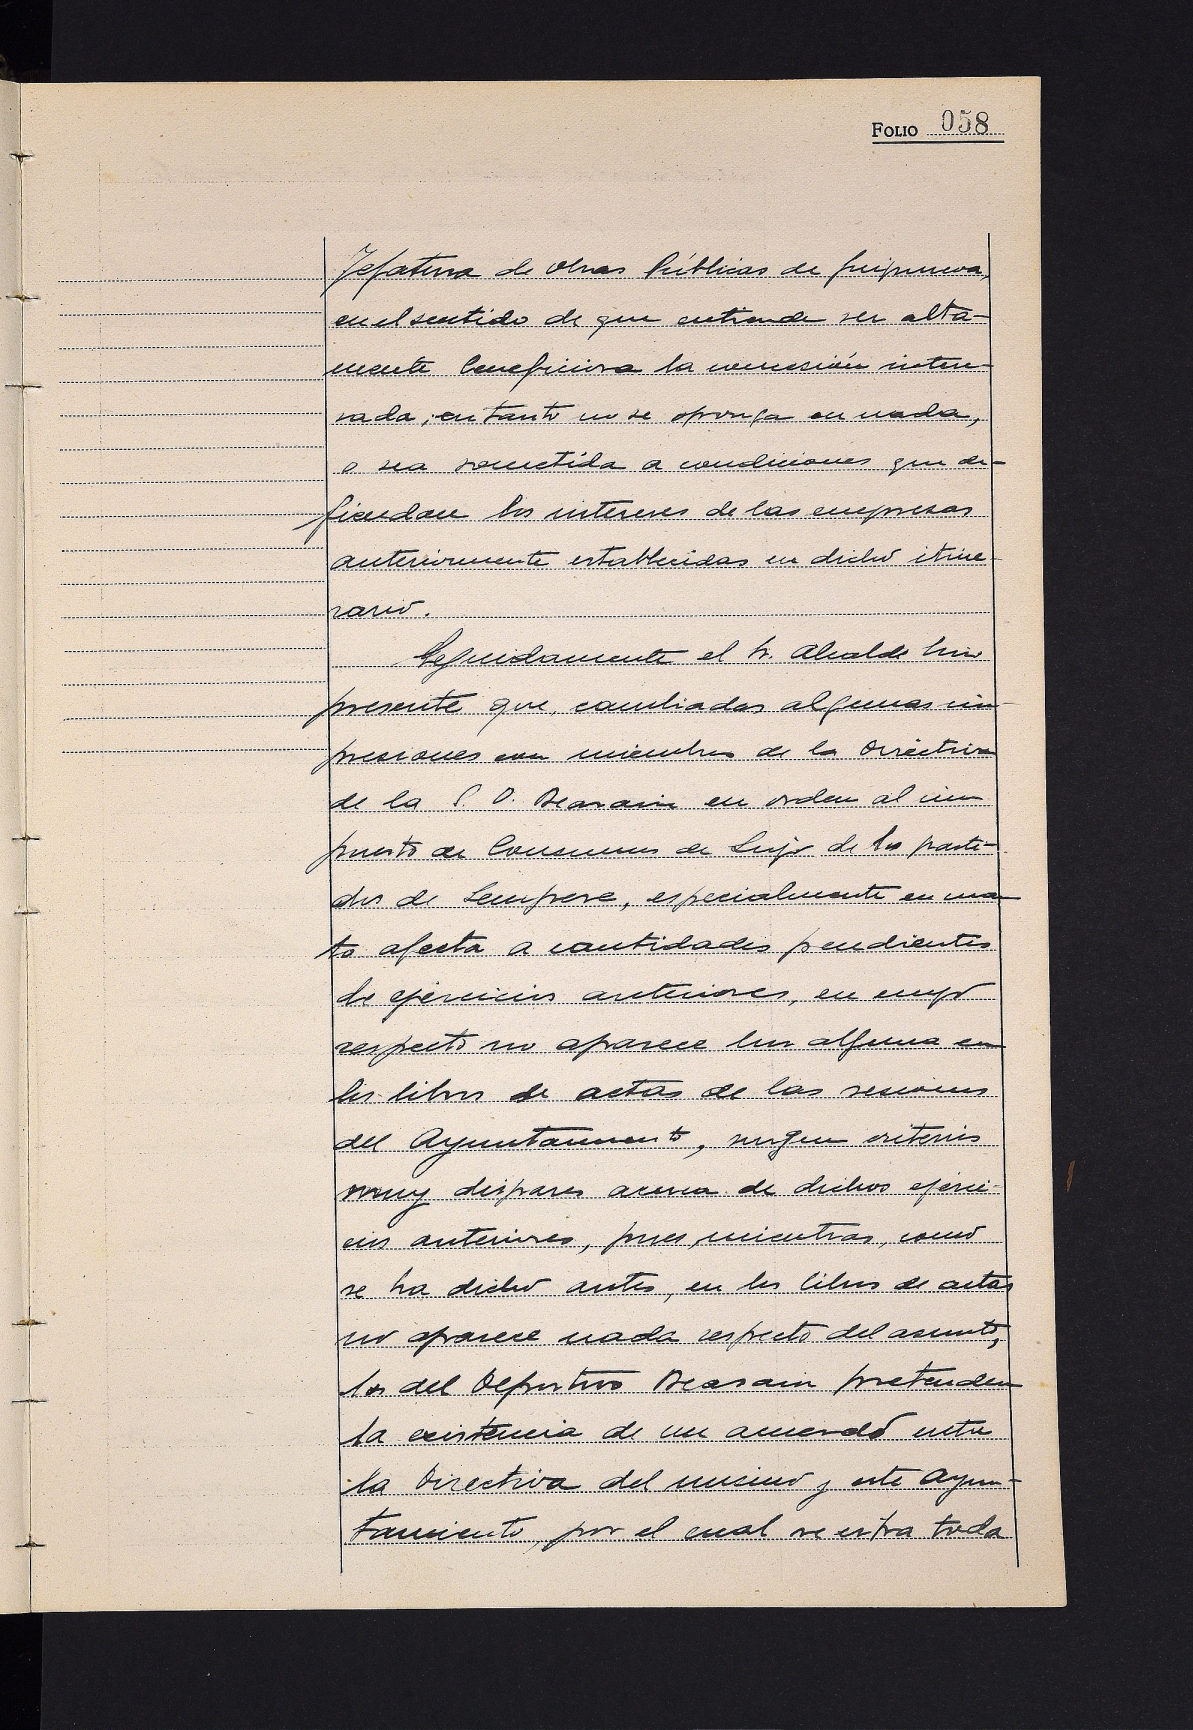 FOLIO 058
Jefatura de Obras Públicas de Guipuzcoa,
en el sentido de que entiende ser alta-
mente beneficiosa la concesión intere-
sada, en tanto no se oponga en nada,
o sea sometida a condiciones que de-
fiendan los intereses de las empresas
anteriormente establecidas en dicho itine-
rario.
Seguidamente el Sr. Alcalde hizo
presente que, cambiadas algunas im-
presiones con miembros de la Directiva
de la S. D. Beasain en orden al im-
puesto de Consumos de Lujo de los parti-
dos de Lempore, especialmente en cuan-
to afecta a cantidades pendientes
de ejercicios anteriores, en cuyo
respecto no aparece luz alguna en
los libros de actas de las sesiones
del Ayuntamiento, surgen criterios
muy dispares acerca de dichos ejerci-
cios anteriores, pues, mientras, como
se ha dicho antes, en los libros de actas
no aparece nada respecto del asunto,
los del Deportivo Beasain pretenden
la existencia de un acuerdo entre
la Directiva del mismo y este Ayun-
tamiento, por el cual se toda